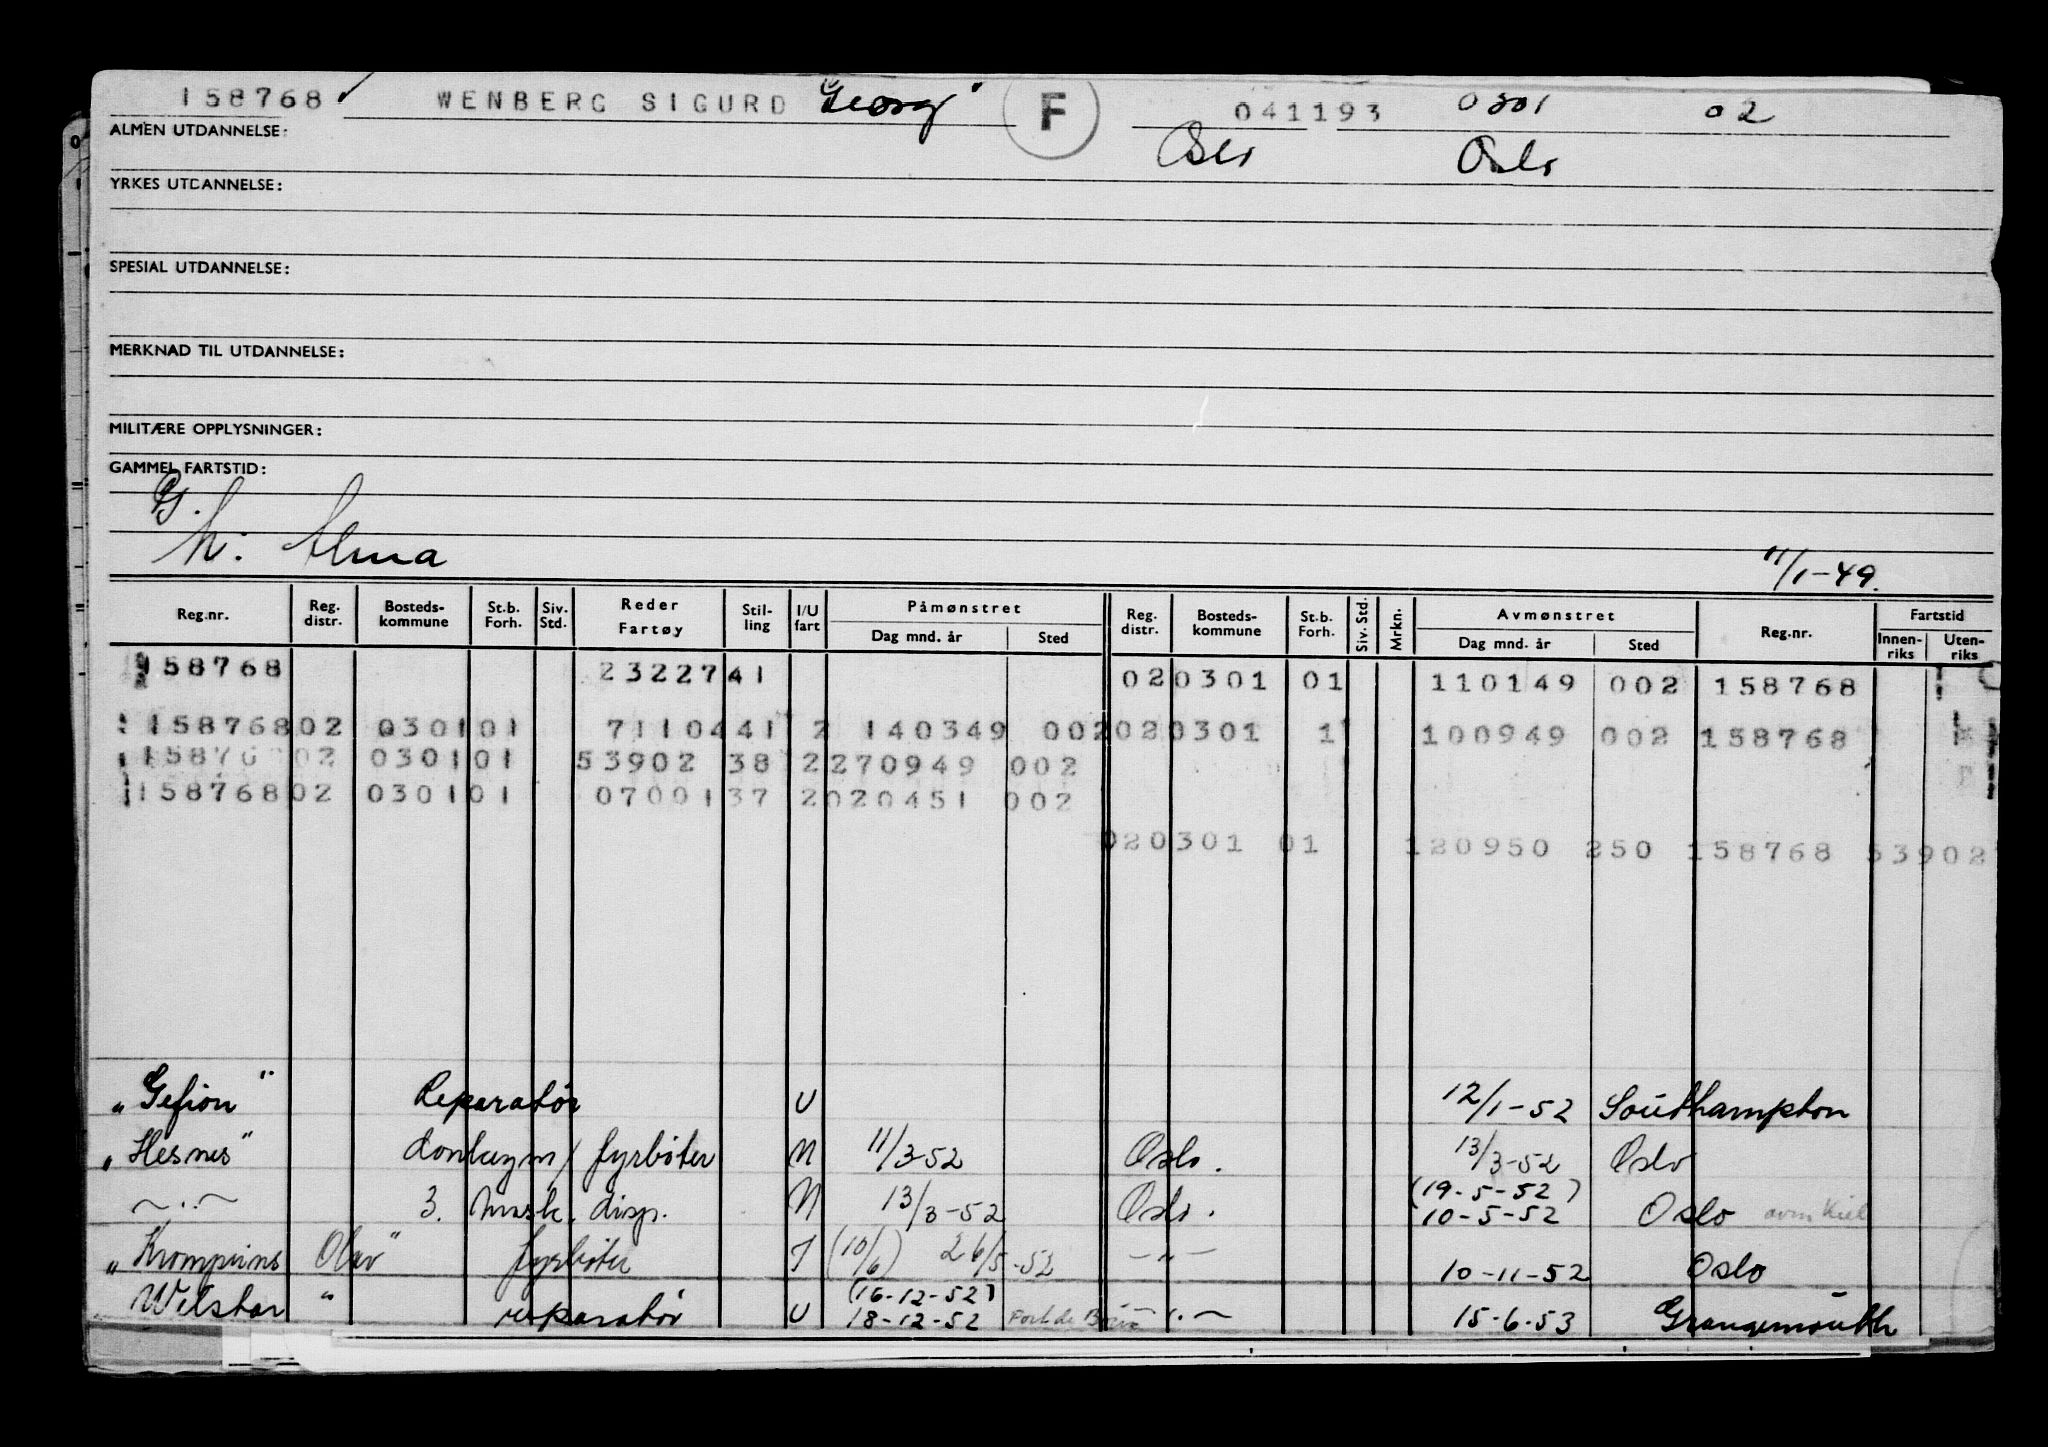 158768 WENBERG SIGURD Georg F 041193 0301 02
ALMEN UTDANNELSE: Oslo Oslo
YRKES UTDANNELSE:
SPESIAL UTDANNELSE:
MERKNAD TIL UTDANNELSE:
MILITÆRE OPPLYSNINGER:
GAMMEL FARTSTID:
G.
h: Alma 11/1-49.
Reg.nr. Reg. distr. Bosteds-kommune St.b. Forh. Siv. Std. Reder Fartøy Stil-ling I/U fart Påmønstret Dag mnd. år Sted Reg. distr. Bosteds-kommune St.b. Forh. Siv. Std. Mrkn. Avmønstret Dag mnd. år Sted Reg.nr. Fartstid Innen-riks Uten-riks
158768 2322741 020301 01 110149 002 158768
15876802 030101 7110441 2 140349 002020301 1 100949 002 158768
15876 02 030101 53902 38 2270949 002
15876802 030101 0700137 2020451 002
020301 01 120950 250 158768 53902
"Gefion" Reparatør U 12/1-52 Southampton
"Hesnes" donkeym/fyrbøter N 11/3-52 Oslo. 13/3-52 Oslo
-"- 3. mask. disp. N 13/3-52 Oslo. (19-5-52) 10-5-52 Oslo avm Kiel
"Kronprins Olav" fyrbøter I (10/6) 26/5-52 -"- 10-11-52 Oslo
Welstar " reparatør U (16-12-52) 18-12-52 -"- 15-6-53 Grangemouth